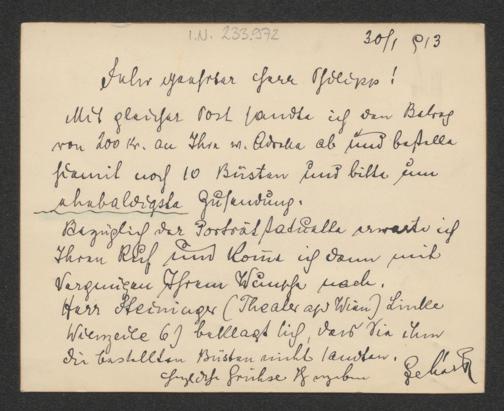 I.N. 233.972
30/I 913
Sehr geehrter Herr Philipp!
Mit gleicher Post sandte ich den Betrag
von 200 Kr. an Ihre w. Adresse ab und bestelle
hiemit noch 10 Büsten und bitte um
ehebaldigste Zusendung.
Bezüglich der Porträtstatuette erwarte ich
Ihren Ruf und komme ich dann mit
Vergnügen Ihrem Wunsche nach.
Herr Steininger (Theater a/d Wien) Linke
Wienzeile 6) beklagt sich, dass Sie ihm
die bestellten Büsten nicht sandten.
Herzliche Grüsse